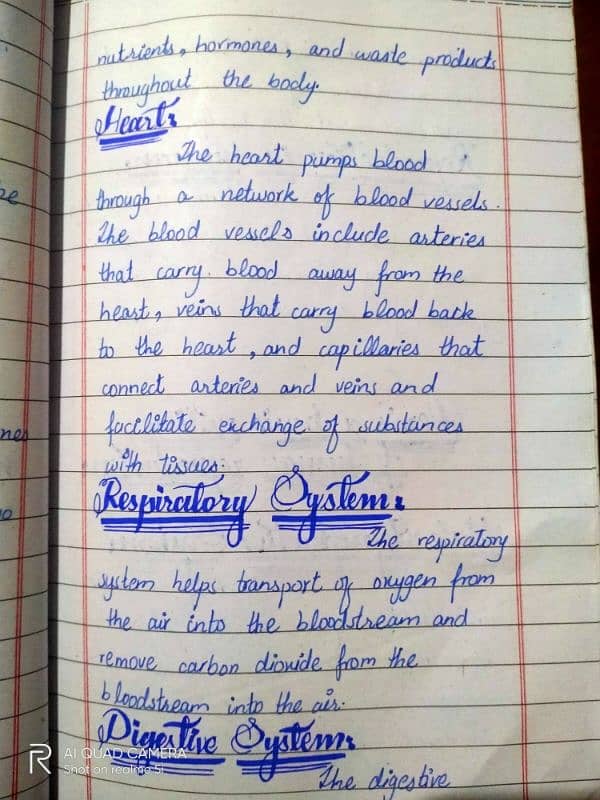 nutrients, hormones, and waste products
throughout the body.
Heart:
The heart pumps blood
through a network of blood vessels.
The blood vessels include arteries
that carry blood away from the
heart, veins that carry blood back
to the heart, and capillaries that
connect arteries and veins and
facilitate exchange of substances
with tissues.
Respiratory System:
The respiratory
system helps transport of oxygen from
the air into the bloodstream and
remove carbon dioxide from the
bloodstream into the air.
Digestive System:
The digestive
AI QUAD CAMERA
Shot on realme 5i